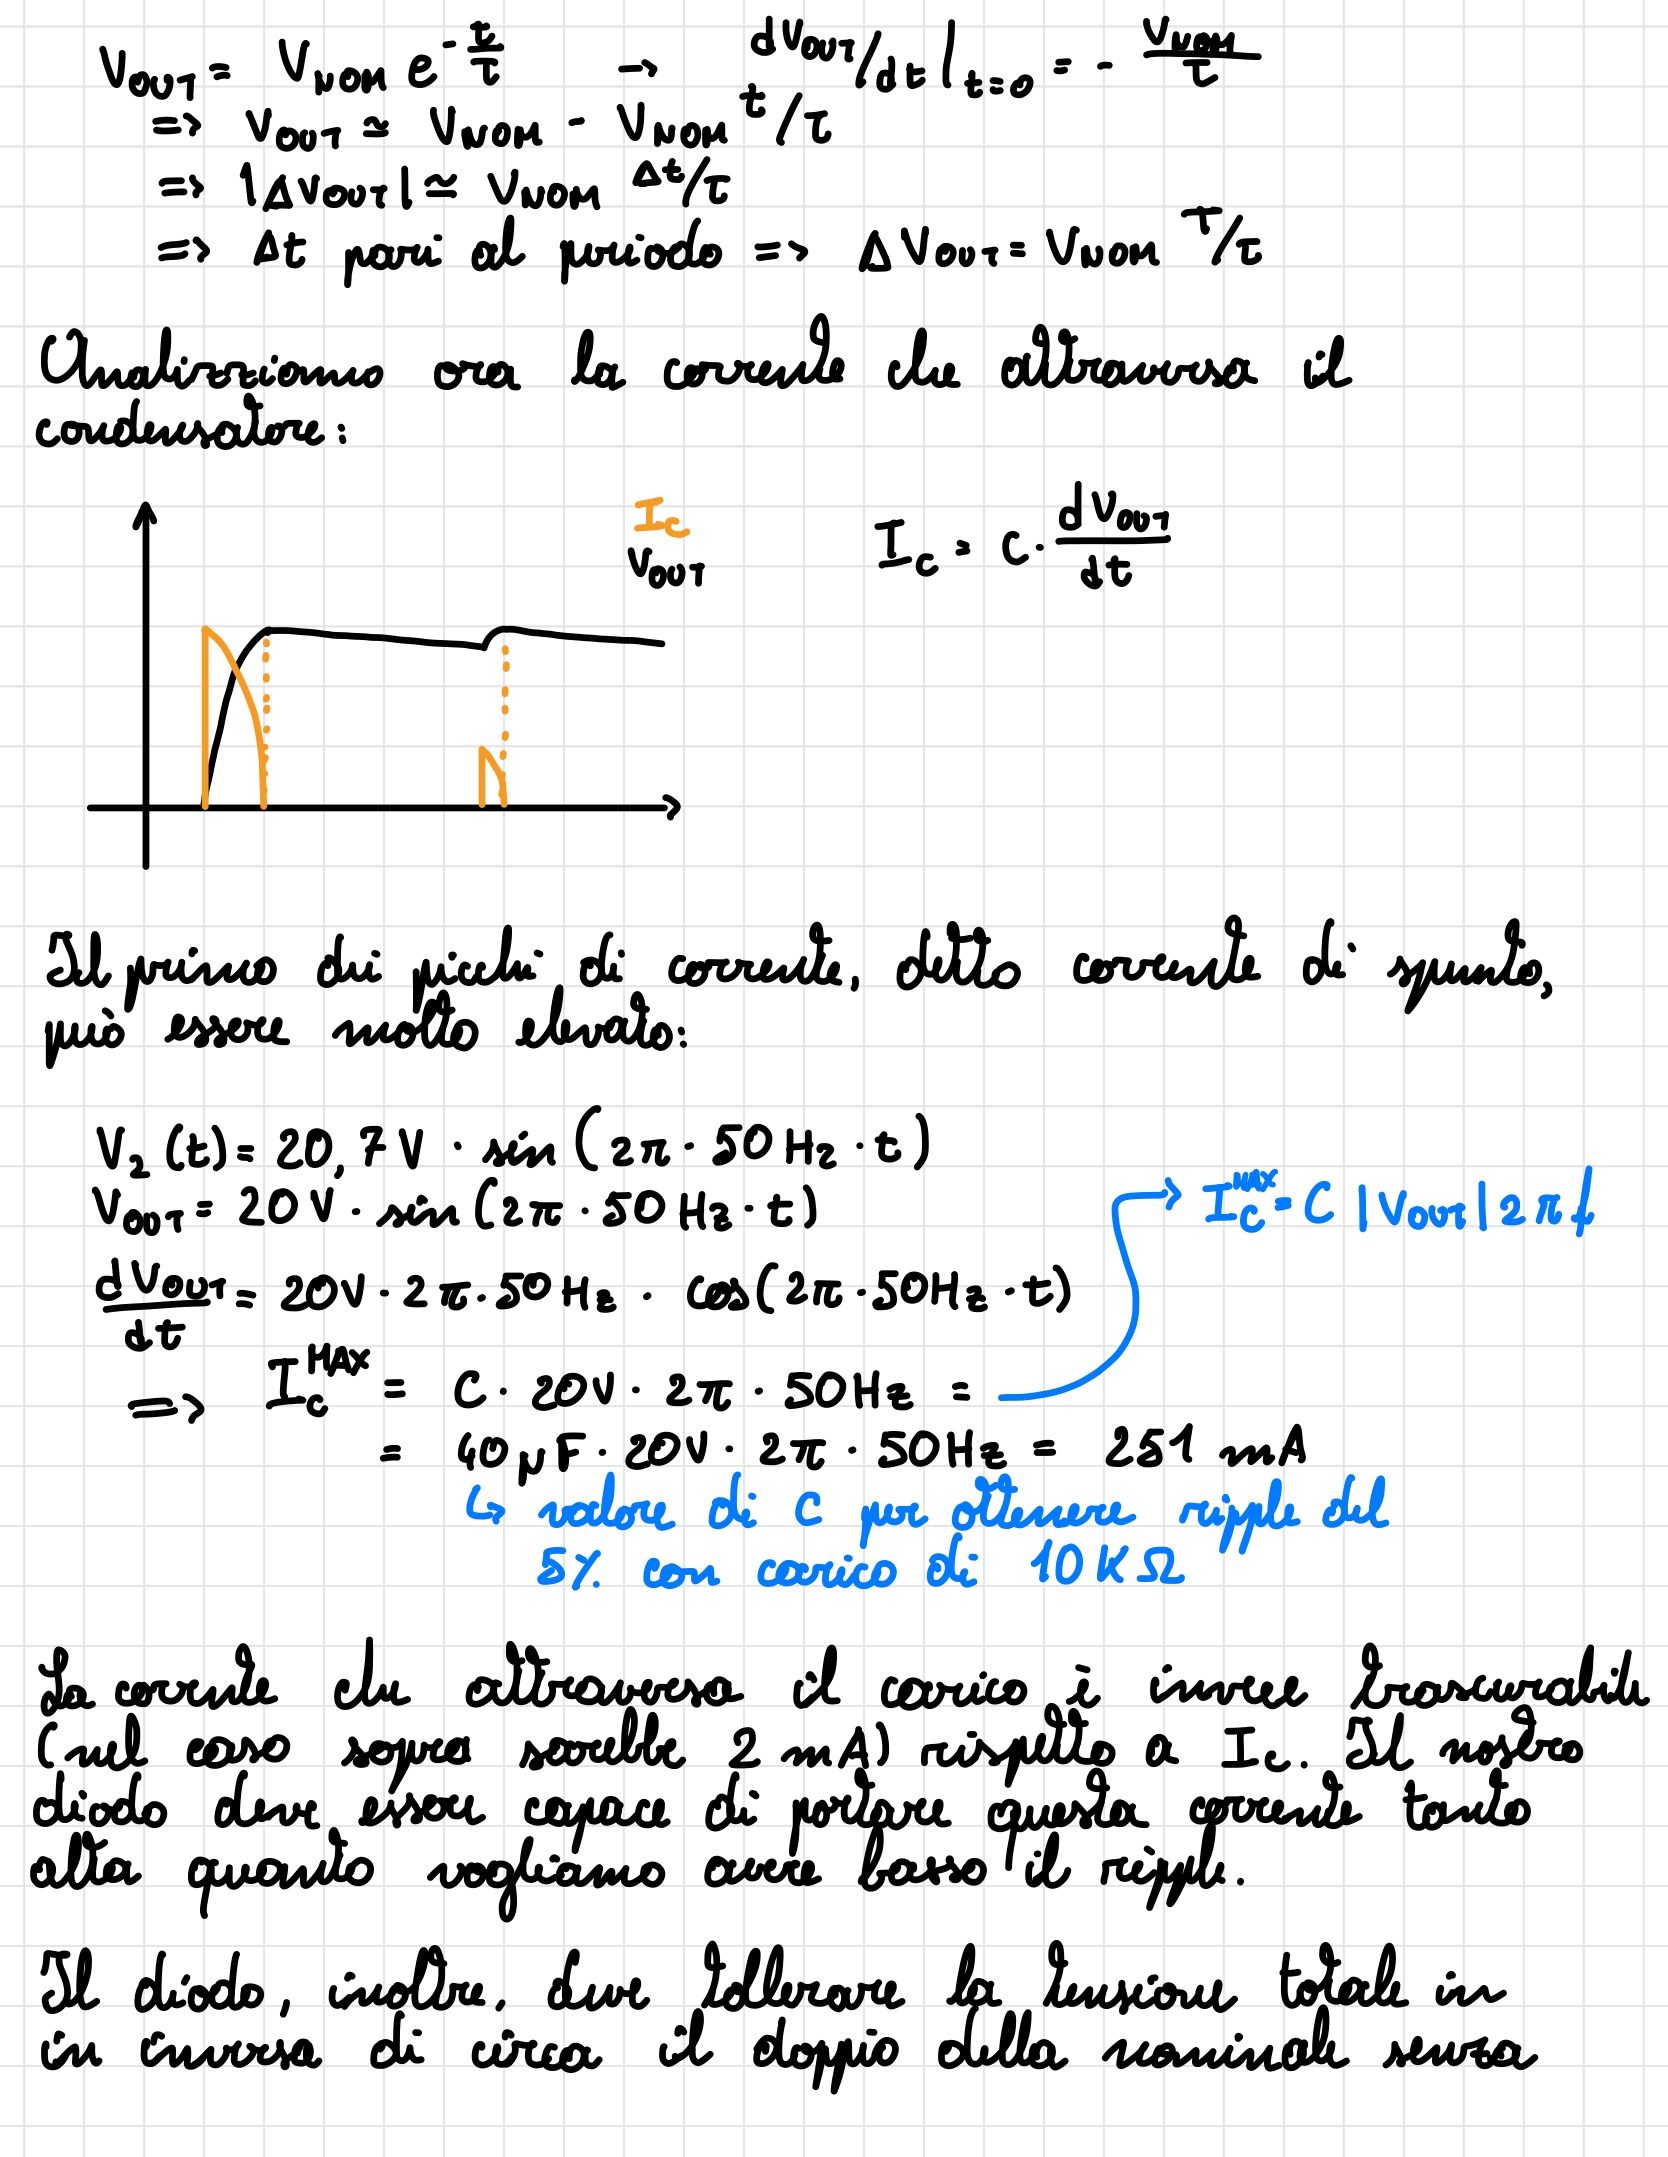 V_OUT = V_NOM e^(-t/τ) → dV_OUT/dt |_(t=0) = - V_NOM/τ
=> V_OUT ≃ V_NOM - V_NOM t/τ
=> |ΔV_OUT| ≃ V_NOM Δt/τ
=> Δt pari al periodo => ΔV_OUT = V_NOM T/τ
Analizziamo ora la corrente che attraversa il
condensatore:
I_C
V_OUT
I_C = C · dV_OUT/dt
Il primo dei picchi di corrente, detto corrente di spunto,
può essere molto elevato:
V_2 (t) = 20,7 V · sin (2π · 50 Hz · t)
V_OUT = 20 V · sin (2π · 50 Hz · t)
→ I_C^MAX = C |V_OUT| 2 π f
dV_OUT/dt = 20V · 2π · 50 Hz · cos(2π · 50Hz · t)
=> I_C^MAX = C · 20V · 2π · 50Hz =
= 40 μF · 20V · 2π · 50Hz = 251 mA
↳ valore di C per ottenere ripple del
5% con carico di 10 KΩ
La corrente che attraversa il carico è invece trascurabile
(nel caso sopra sarebbe 2 mA) rispetto a I_C. Il nostro
diodo deve essere capace di portare questa corrente tanto
alta quanto vogliamo avere basso il ripple.
Il diodo, inoltre, deve tollerare la tensione totale in
in inversa di circa il doppio della nominale senza